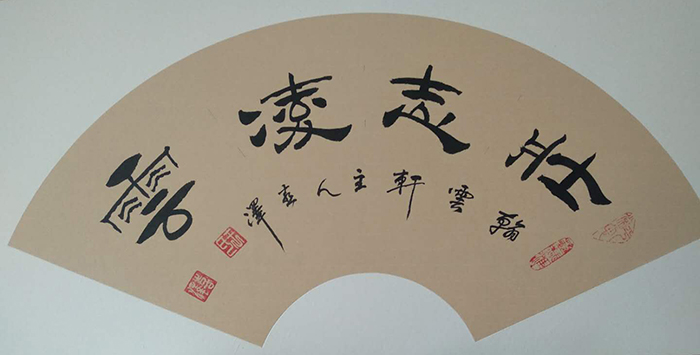 壮志凌雲
翰雲軒主人澤